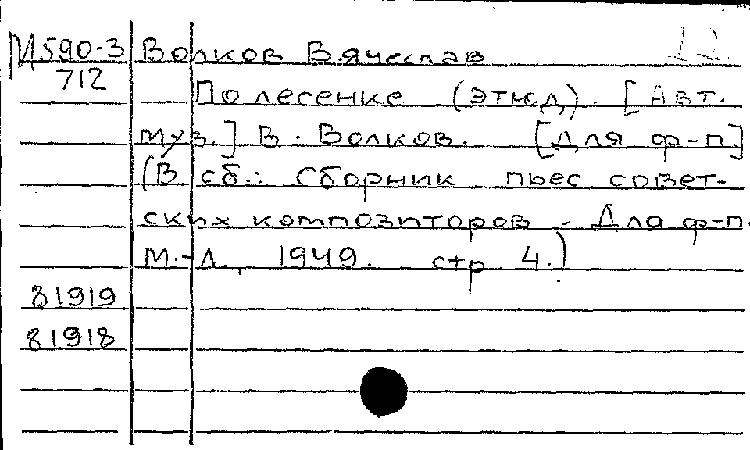 М590-3 Волков Вячеслав
712
По лесенке (этюд). [Авт.
муз.] В. Волков. [Для ф-п.]
(В сб.: Сборник пьес совет-
ских композиторов - Для ф-п.
М.-Л., 1949. стр. 4.)
81919
81918